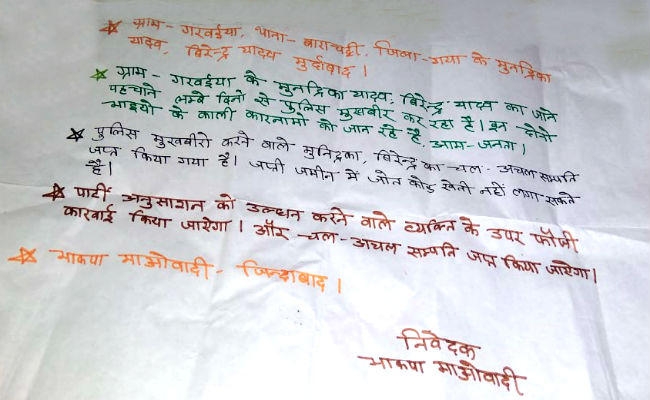 ग्राम - गरवईया, थाना - बाराचट्टी, जिला - गया के मुनद्रिका
यादव, बिरेन्द्र यादव मुर्दाबाद।
ग्राम - गरवईया के मुनद्रिका यादव, बिरेन्द्र यादव का जाने
पहचाने लम्बे दिनो से पुलिस मुखबीर कर रहा है। इन दोनो
भाइयो के काली कारनामो को जान रहे है, आम-जनता।
पुलिस मुखबीरी करने वाले मुनिद्रका, बिरेन्द्र का चल-अचल सम्पति
जप्त किया गया है। जप्ती जमीन में जोत कोड़ खेती नहीं लगा सकते
है।
पार्टी अनुसाशन को उल्धन करने वाले व्यक्ति के उपर फौजी
कारवाई किया जाऐगा। और चल-अचल सम्पति जप्त किया जाऐगा।
भाकपा माओवादी - जिन्दाबाद।
निवेदक
भाकपा माओवादी